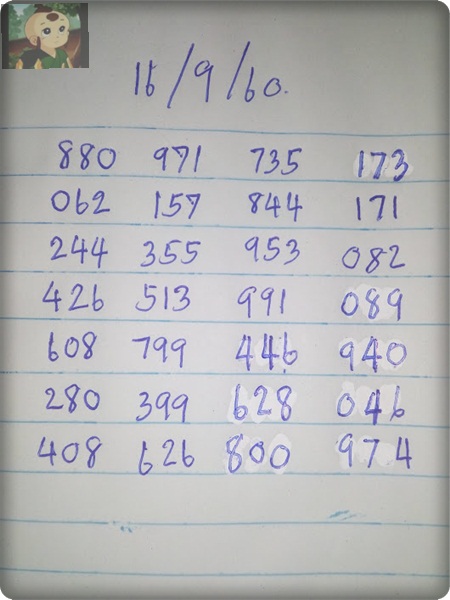 16/9/60.
880 971 735 173
062 157 844 171
244 355 953 082
426 513 991 089
608 799 446 940
280 399 628 046
408 626 800 974